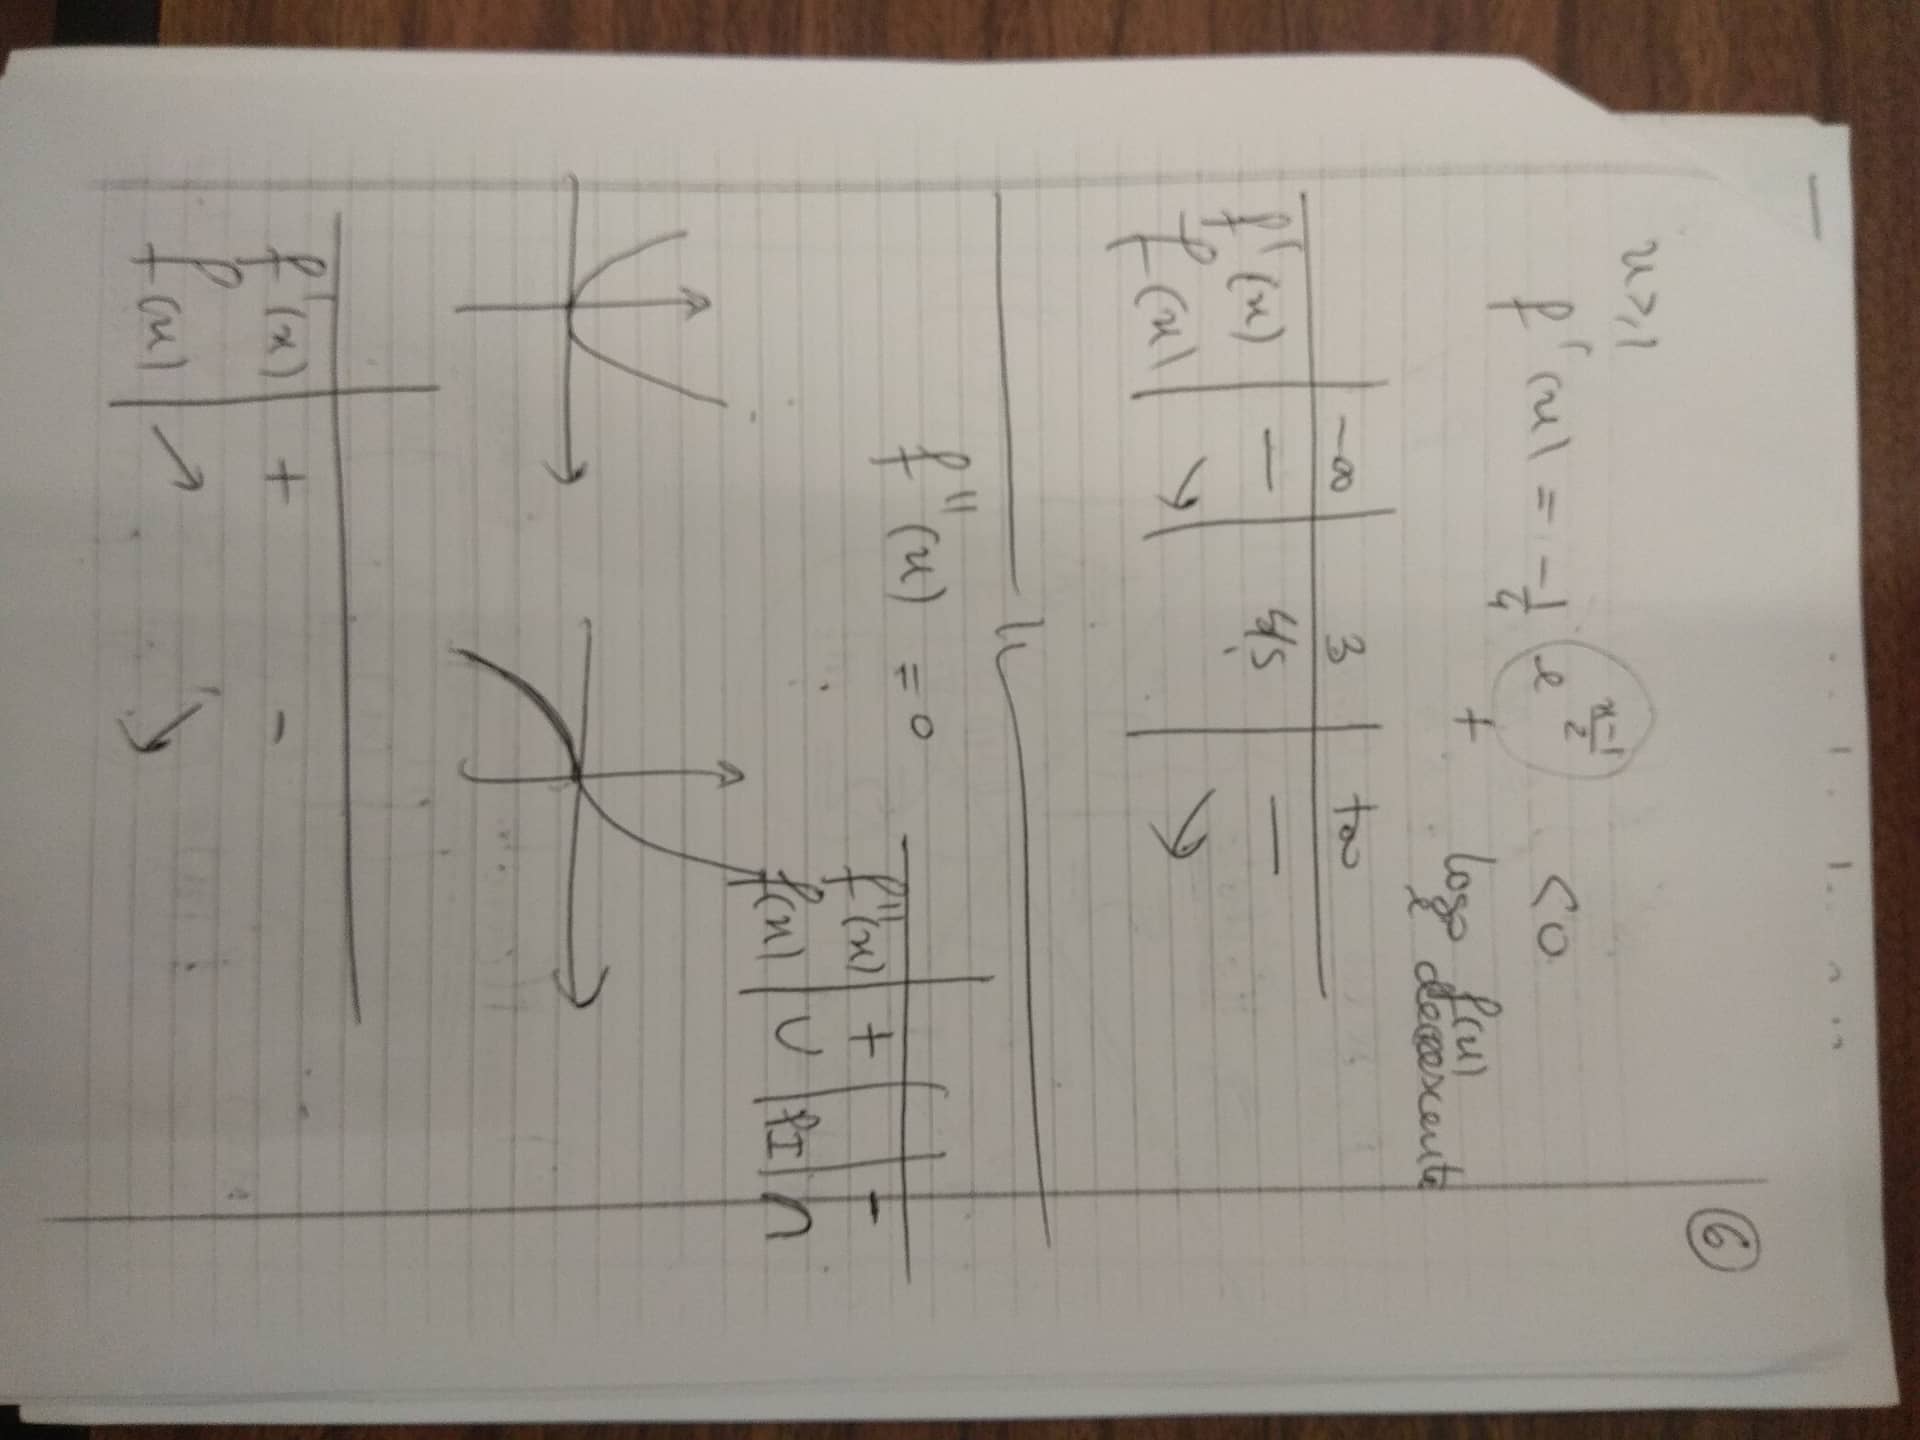 6
x≥1
f'(x) = -1/4 e^(x-1)/2 < 0
+
logo f(x)
é decrescente
-∞ 3 +∞
f'(x) - S/S -
f(x) ↘ ↘
f''(x) = 0
f''(x) + -
f(x) ∪ P.I ∩
f'(x) + -
f(x) ↗ ↘